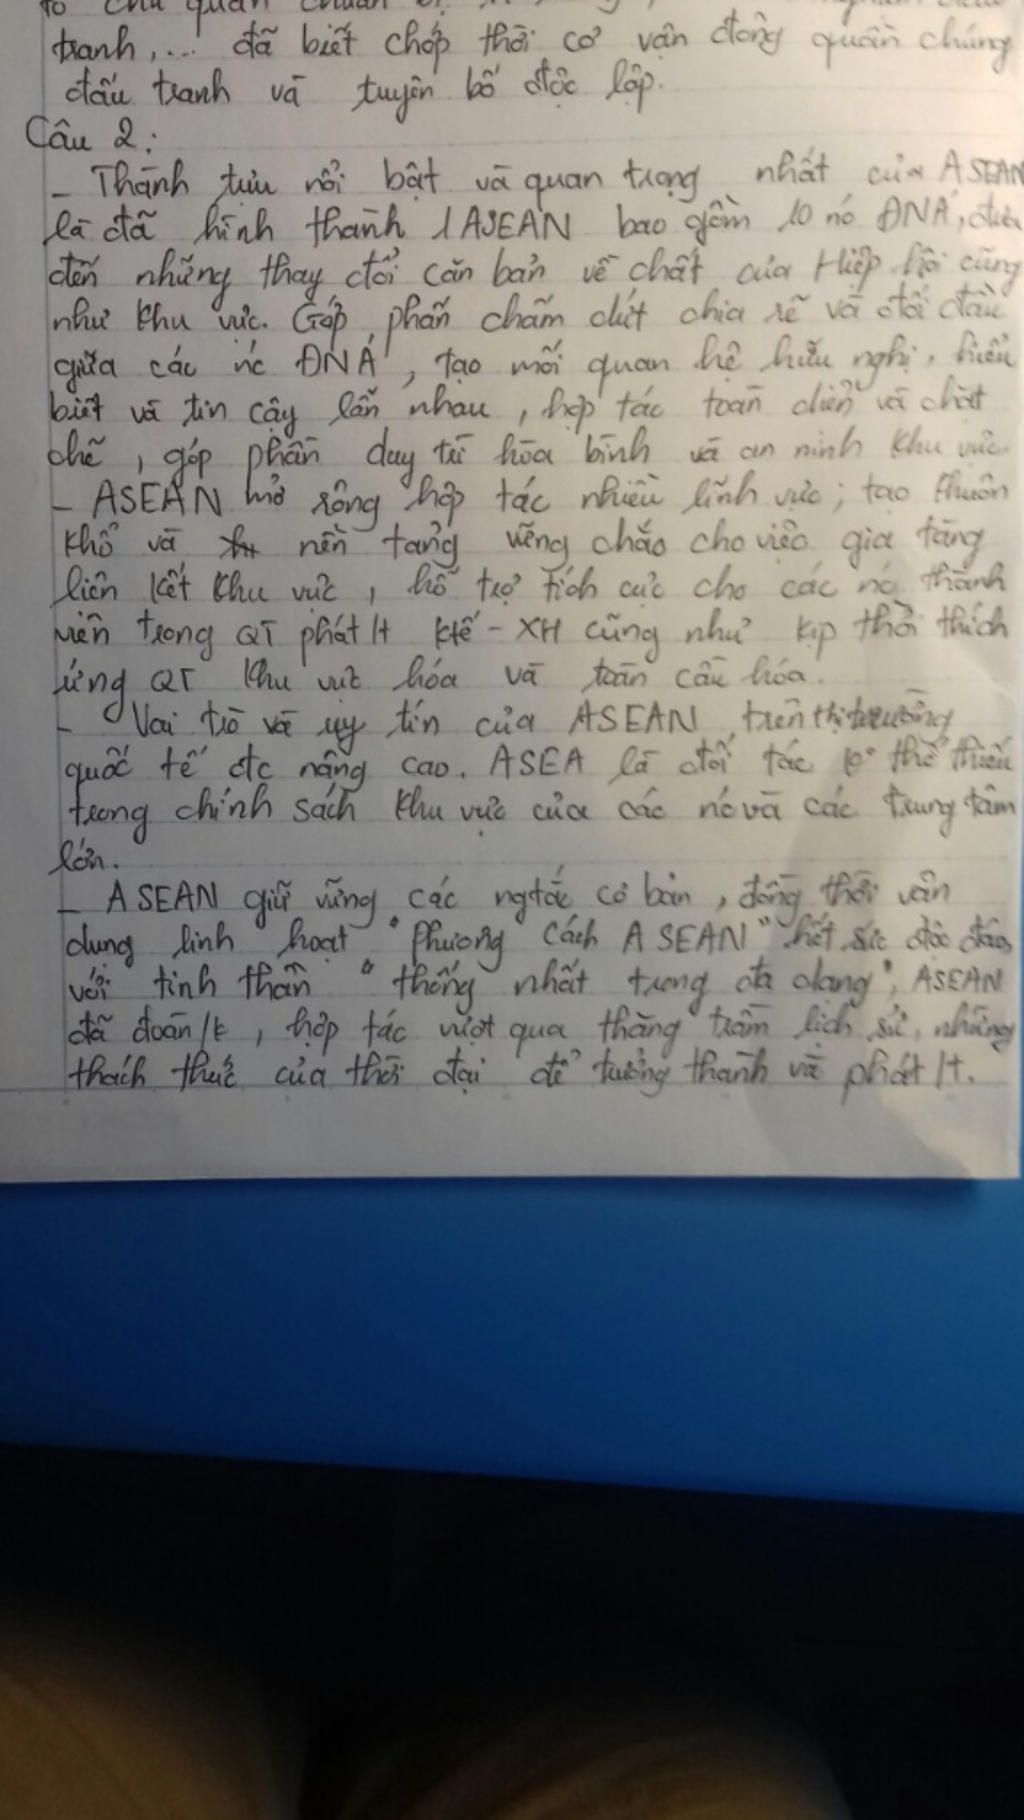 tranh,... đã biết chớp thời cơ vận động quần chúng
đấu tranh và tuyên bố độc lập.
Câu 2:
- Thành tựu nổi bật và quan trọng nhất của ASEAN
là đã hình thành 1 ASEAN bao gồm 10 nc ĐNÁ, đưa
đến những thay đổi căn bản về chất của Hiệp hội cũng
như khu vực. Góp phần chấm dứt chia rẽ và đối đầu
giữa các nc ĐNÁ, tạo mối quan hệ hữu nghị, hiểu
biết và tin cậy lẫn nhau, hợp tác toàn diện và chặt
chẽ, góp phần duy trì hòa bình và an ninh khu vực.
- ASEAN mở rộng hợp tác nhiều lĩnh vực; tạo khuôn
khổ và nền tảng vững chắc cho việc gia tăng
liên kết khu vực, hỗ trợ tích cực cho các nc thành
viên trong QT phát /t ktế - XH cũng như kịp thời thích
ứng QT khu vực hóa và toàn cầu hóa.
- Vai trò và uy tín của ASEAN trên thị trường
quốc tế đc nâng cao. ASEA là đối tác ko thể thiếu
trong chính sách khu vực của các nc và các trung tâm
lớn.
- ASEAN giữ vững các ngtắc cơ bản, đồng thời vận
dụng linh hoạt "Phương cách ASEAN" hết sức độc đáo
với tinh thần "thống nhất trong đa dạng", ASEAN
đã đoàn /k, hợp tác vượt qua thăng trầm lịch sử, những
thách thức của thời đại để trưởng thành và phát /t.